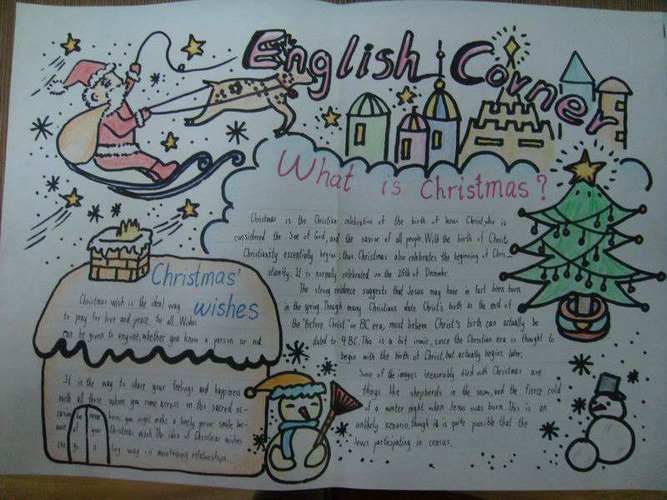 English Corner
What is Christmas?
Christmas is the Christian celebration of the birth of Jesus Christ, who is
considered the Son of God, and the savior of all people. With the birth of Christ
Christianity essentially begins, thus Christmas also celebrates the beginning of Chris-
tianity. It is normally celebrated on the 25th of December.
The strong evidence suggests that Jesus may have in fact been born
in the spring. Though many Christians date Christ's birth as the end of
the "Before Christ" or BC era, most believe Christ's birth can actually be
dated to 4 BC. This is a bit ironic, since the Christian era is thought to
begin with the birth of Christ, but actually begins later.
Some of the images inexorably tied with Christmas are
things like shepherds in the snow, and the fierce cold
of a winter night when Jesus was born. This is an
unlikely scenario, though it is quite possible that the
Jesus participating in census.
Christmas' wishes
Christmas wish is the ideal way
to pray for love and peace for all. Wishes
can be given to anyone, whether you know a person or not.
It is the way to share your feelings and happiness
with all those whom you come across in this sacred oc-
you might make a lonely person smile be-
of your Christmas wish. The idea of Christmas wishes
way in maintaining relationships.